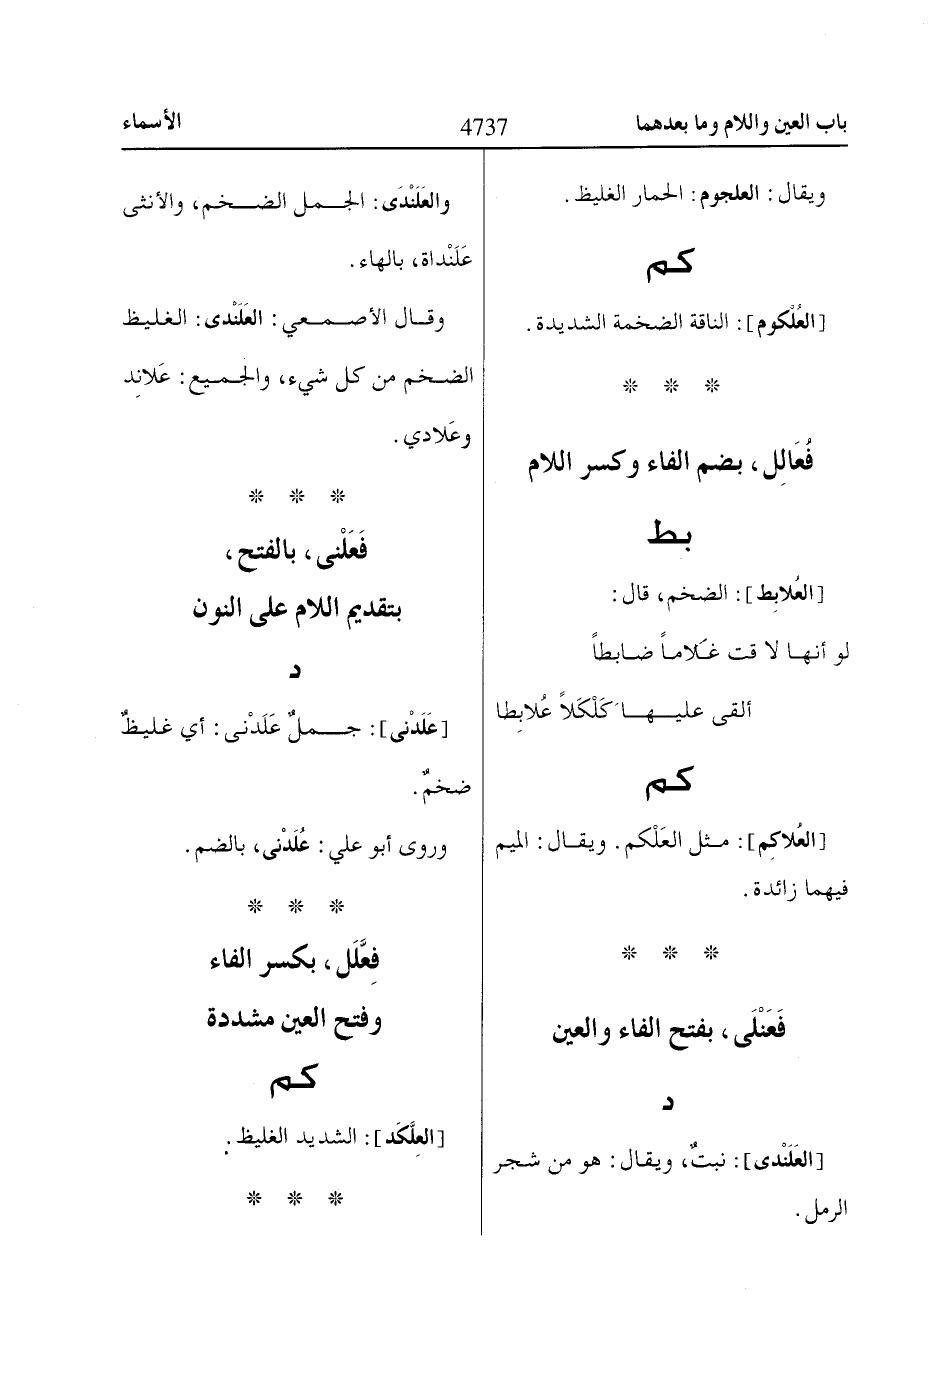 باب العين واللام وما بعدهما
4737
الأسماء
ويقال: العلجوم: الحمار الغليظ.
كم
[العُلْكوم]: الناقة الضخمة الشديدة.
* * *
فُعَالِل، بضم الفاء وكسر اللام
بط
[العُلابِط]: الضخم، قال:
لو أنها لا قت غلاماً ضابطاً
ألقى عليها كَلْكَلاً عُلابِطا
كم
[العُلاكِم]: مثل العَلْكم. ويقال: الميم
فيهما زائدة.
* * *
فَعَنْلَى، بفتح الفاء والعين
د
[العَلَنْدى]: نبتٌ، ويقال: هو من شجر
الرمل.
والعَلَنْدَى: الجمل الضخم، والأنثى
عَلَنْداة، بالهاء.
وقال الأصمعي: العَلَنْدى: الغليظ
الضخم من كل شيء، والجميع: عَلانِد
وعَلادي.
* * *
فَعَلْنى، بالفتح،
بتقديم اللام على النون
د
[عَلَدْنى]: جملٌ عَلَدْنى: أي غليظٌ
ضخمٌ.
وروى أبو علي: عُلَدْنى، بالضم.
* * *
فِعَّلَل، بكسر الفاء
وفتح العين مشددة
كم
[العِلَّكَد]: الشديد الغليظ.
* * *